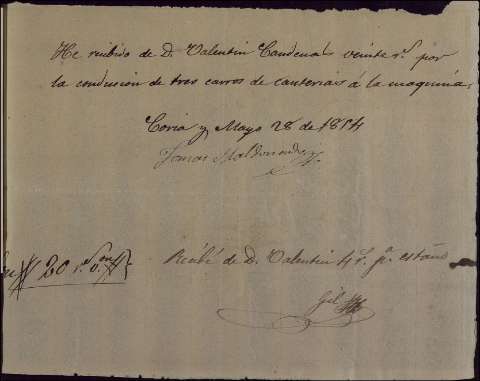 He recibido de D. Valentin Candenal veinte r.ˢ por
la conducion de tres carros de canterias á la maquina.
Coria y Mayo 28 de 1854
Tomas Maldonado
20 r.ˢ v.ⁿ
Recibi de D. Valentin 4 r.ˢ p.ʳ estaño
Gil